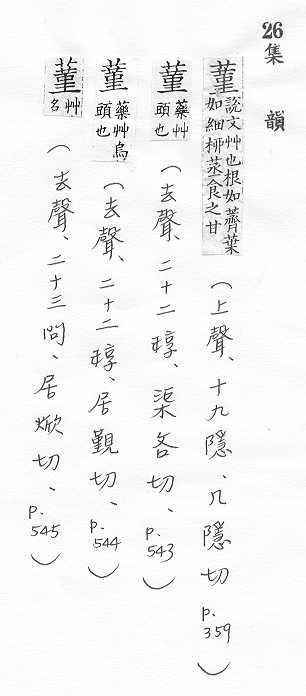 26集韻
蓳 說文艸也根如薺葉如細栁蒸食之甘(上聲、十九隱、几隱切 p.359)
蓳 藥艸頭也(去聲、二十二稕、渠吝切、p.543)
蓳 藥艸烏頭也(去聲、二十二稕、居覲切、p.544)
蓳 艸名(去聲、二十三問、居焮切、p.545)